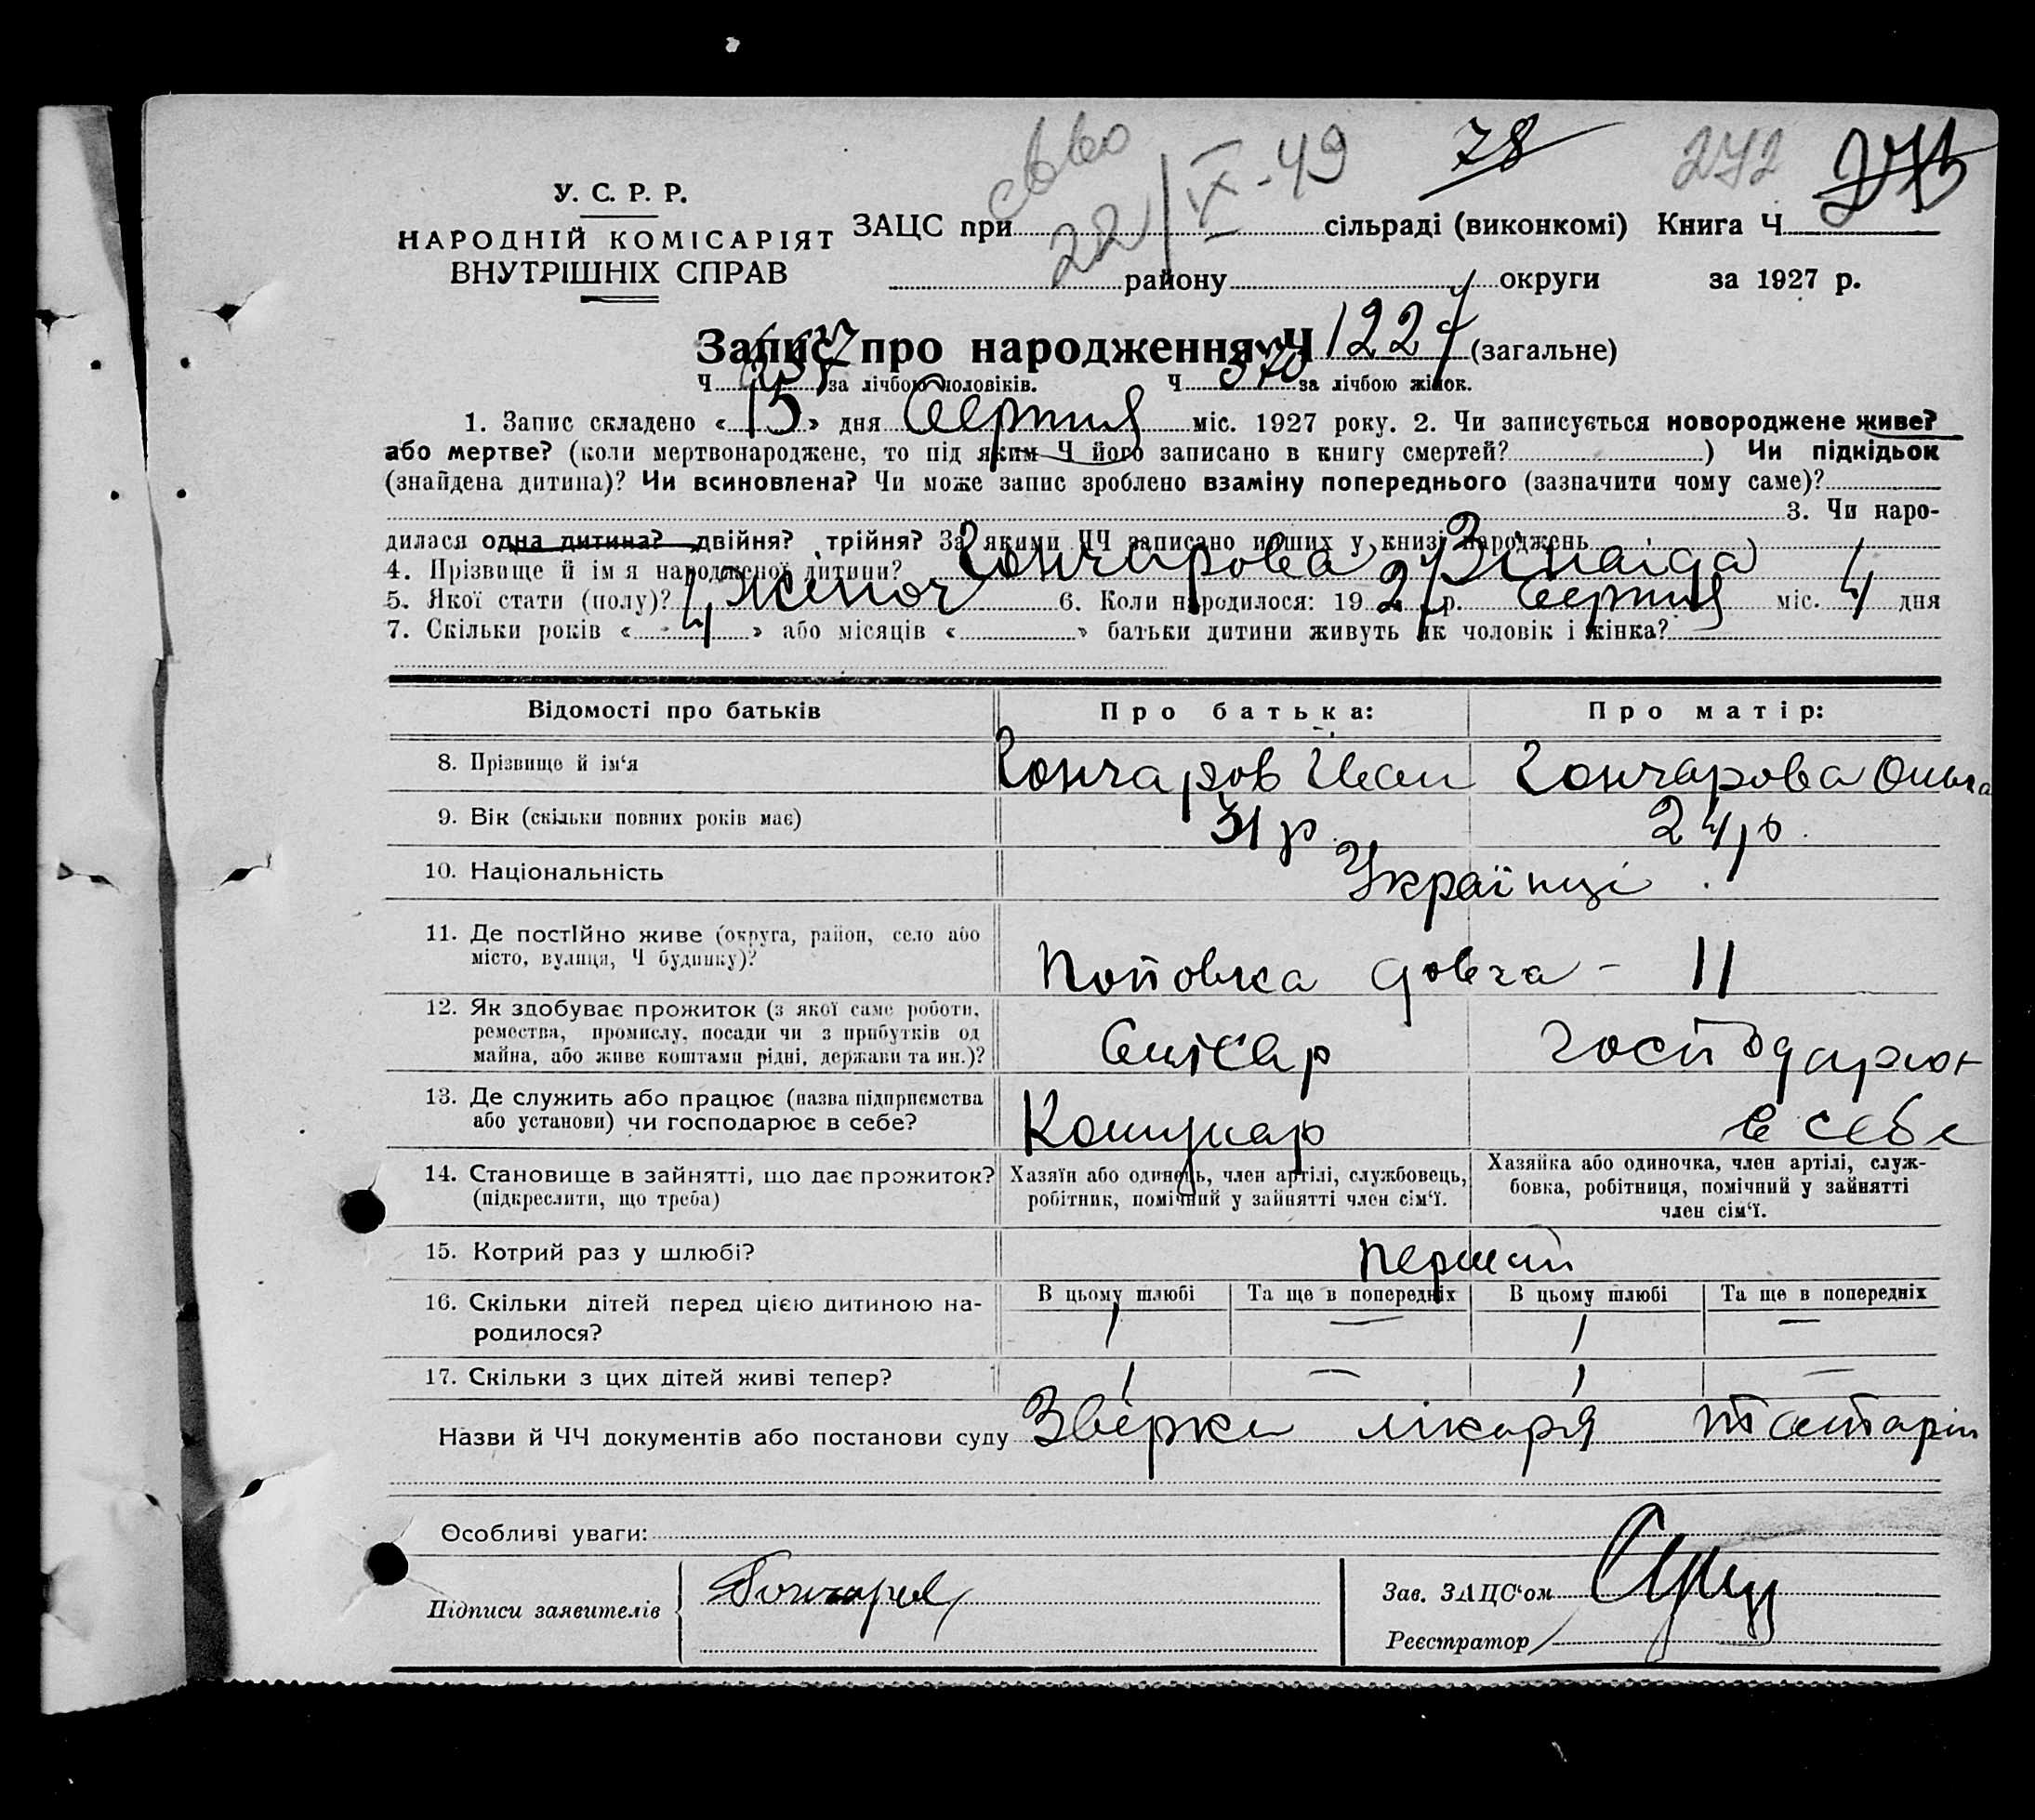 22/IX-49 78 272
У. С. Р. Р.
НАРОДНІЙ КОМІСАРІЯТ
ВНУТРІШНІХ СПРАВ
ЗАЦС при сільраді (виконкомі) Книга Ч
району округи за 1927 р.
Запис про народження Ч 1227 (загальне)
Ч за лічбою чоловіків. Ч 570 за лічбою жінок.
1. Запис складено « 15 » дня Серпня міс. 1927 року. 2. Чи записується новороджене живе?
або мертве? (коли мертвонароджене, то під яким Ч його записано в книгу смертей? ) Чи підкідьок
(знайдена дитина)? Чи всиновлена? Чи може запис зроблено взаміну попереднього (зазначити чому саме)?
3. Чи наро-
дилася одна дитина? двійня? трійня? За якими ЧЧ записано инших у книзі народжень
4. Прізвище й ім я народженої дитини? Гончарова Зінаїда
5. Якої стати (полу)? жіноч 6. Коли народилося: 1927 р. Серпня міс. 4 дня
7. Скільки років « 4 » або місяців « » батьки дитини живуть як чоловік і жінка?
Відомості про батьків Про батька: Про матір:
8. Прізвище й ім‘я Гончаров Иван Гончарова Ольга
9. Вік (скільки повних років має) 31 р. 24 р.
10. Національність Українці
11. Де постІйно живе (округа, район, село або
місто, вулиця, Ч будинку)? Поповка довга - 11
12. Як здобуває прожиток (з якої саме роботи,
ремества, промислу, посади чи з прибутків од
майна, або живе коштами рідні, держави та ин.)?
13. Де служить або працює (назва підприємства
або установи) чи господарює в себе? в себе
14. Становище в зайнятті, що дає прожиток?
(підкреслити, що треба)
Хазяїн або одинець, член артілі, службовець,
робітник, помічний у зайнятті член сім‘ї.
Хазяйка або одиночка, член артілі, служ-
бовка, робітниця, помічний у зайнятті
член сім‘ї.
15. Котрий раз у шлюбі? перший
16. Скільки дітей перед цією дитиною на-
родилося?
В цьому шлюбі Та ще в попередніх В цьому шлюбі Та ще в попередніх
1 — 1 —
17. Скільки з цих дітей живі тепер? 1 — 1 —
Назви й ЧЧ документів або постанови суду лікаря
Особливі уваги:
Підписи заявителів Гончаров
Зав. ЗАЦС‘ом
Реєстратор